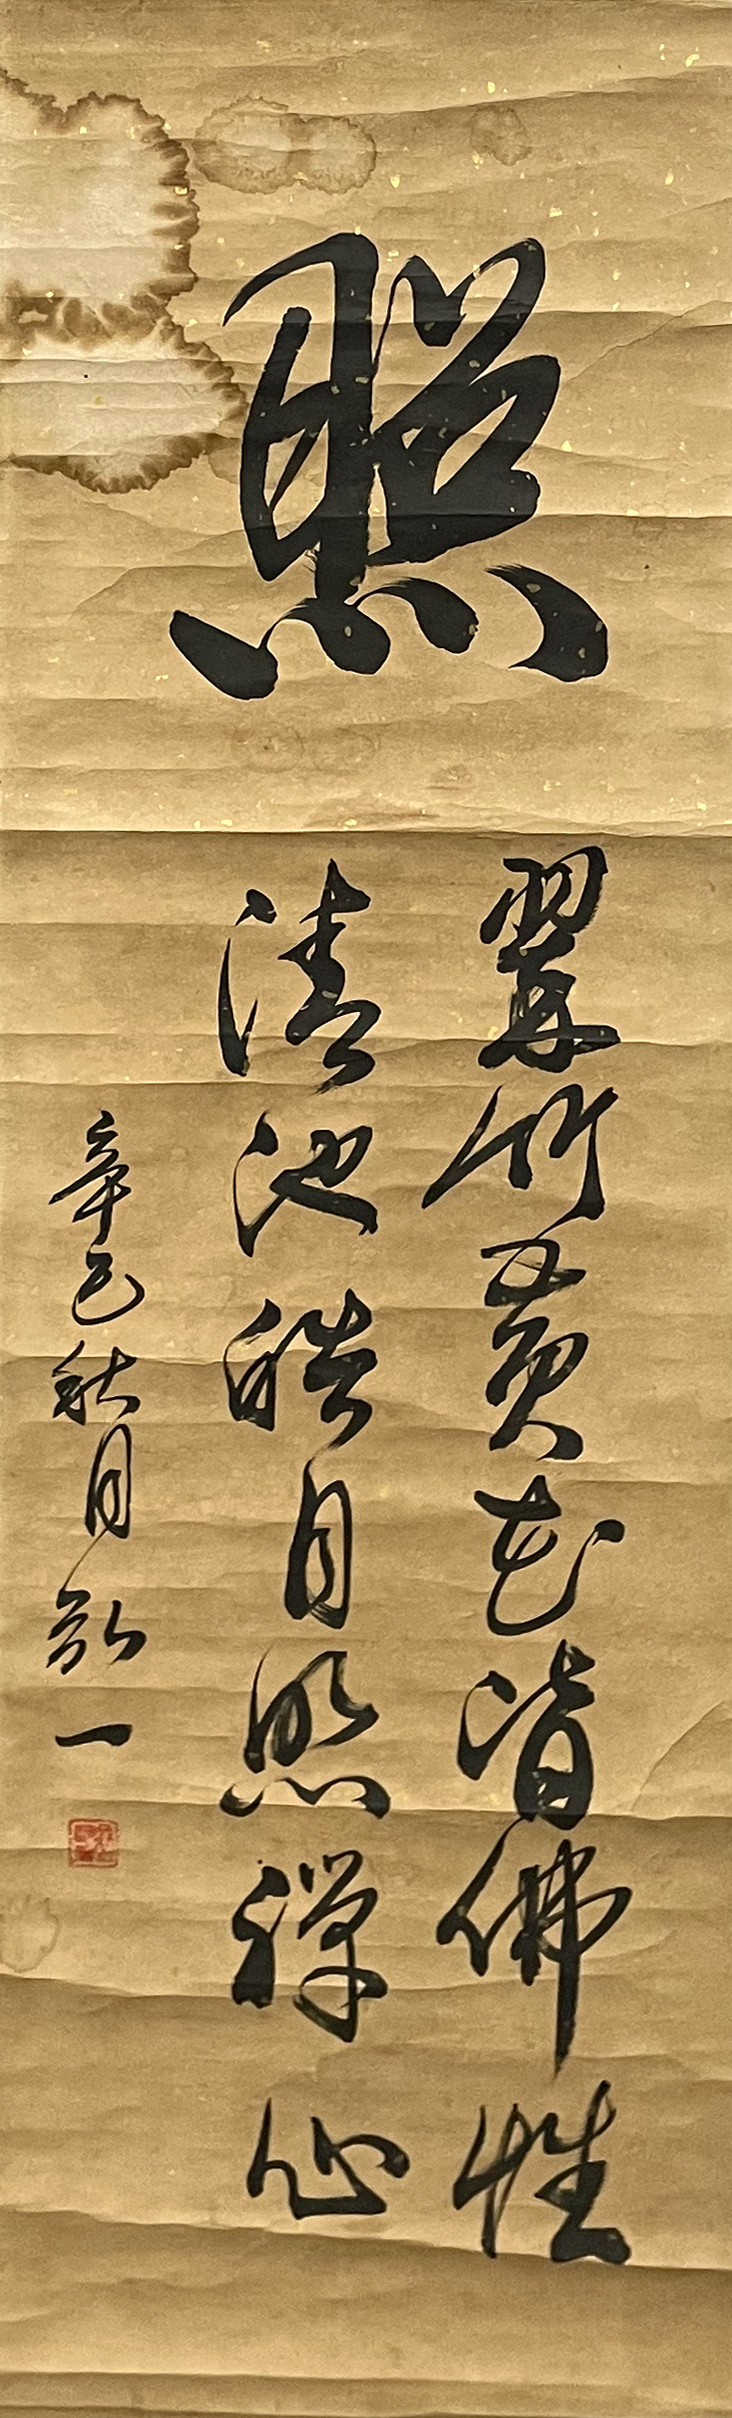 照
翠竹黄花皆佛性
清池皓月照禅心
辛巳秋月弘一